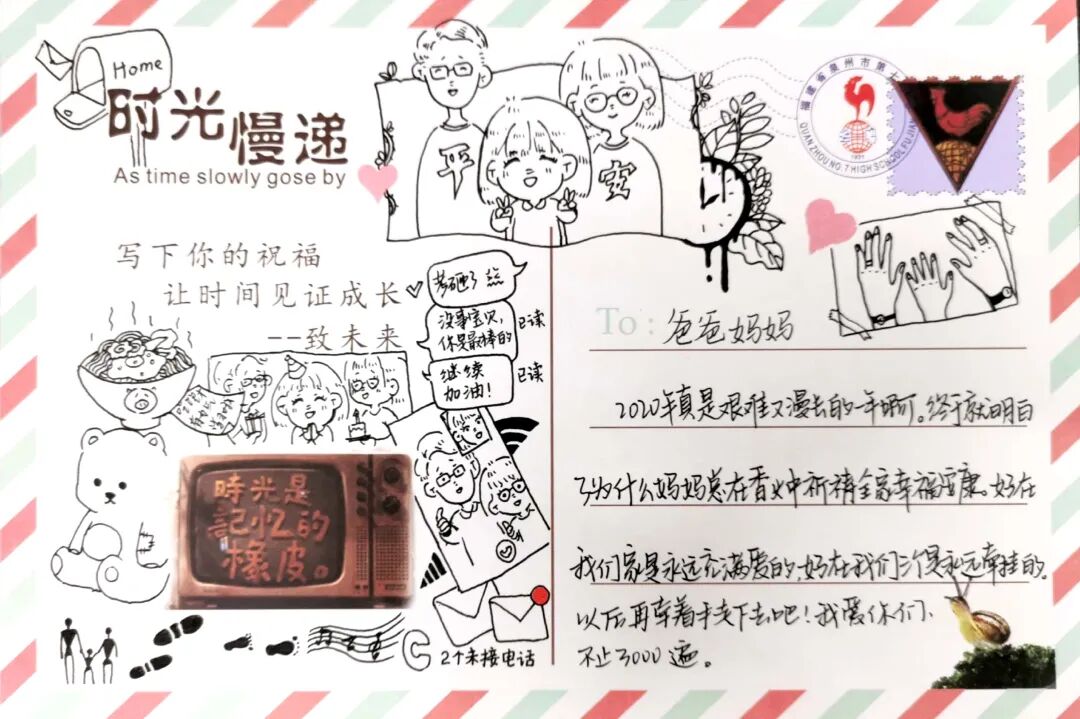 Home
时光慢递
As time slowly gose by
平
安
福建省泉州市第七
QUANZHOU NO.7 HIGH SCHOOL FUJIAN
1931
写下你的祝福
让时间见证成长
--致未来
考砸了
没事宝贝，
你是最棒的
已读
继续
加油！
已读
時光是
記忆的
橡皮。
2个未接电话
To：爸爸妈妈
2020年真是艰难又漫长的一年啊。终于就明白
了为什么妈妈总在香火中祈祷全家幸福健康。好在
我们家是永远充满爱的，好在我们三个是永远牵挂的。
以后再牵着手走下去吧！我爱你们、
不止3000遍。